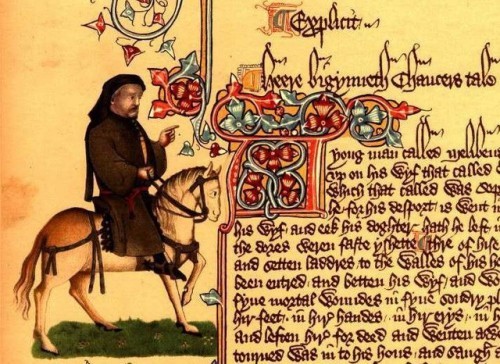 Explicit
Heere bigynneth Chaucers tale
A yong man called
up on his wyf that called
Which that called was
he for his desport is went
his wyf and eek his doghter hath he left
the dores weren faste yshette Thre of his
and setten laddres to the walles of his
been entred and betten his wyf and
fyue mortal woundes in fyue sondry
hir feet in hyr handes in hir erys in
and leften hyr for deed and wenten
tourned was in to his hous and